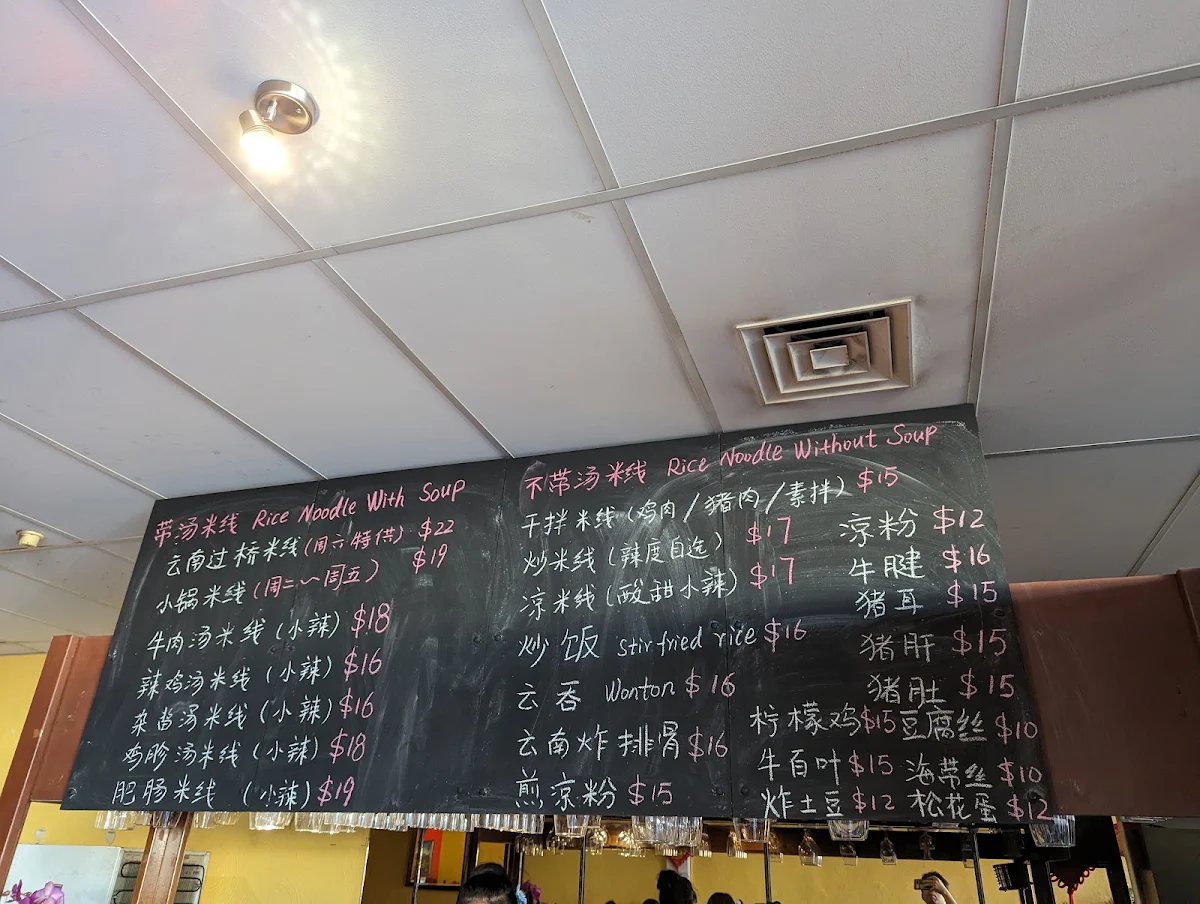 带汤米线 Rice Noodle With Soup
云南过桥米线(周六特供) $22
小锅米线(周二～周五) $19
牛肉汤米线(小辣) $18
辣鸡汤米线(小辣) $16
汤米线(小辣) $16
鸡胗汤米线(小辣) $18
肥肠米线 (小辣) $19
不带汤米线 Rice Noodle Without Soup
干拌米线(鸡肉/猪肉/素拌) $15
炒米线(辣度自选) $17
凉米线(酸甜小辣) $17
炒饭 stir fried rice $16
云吞 Wonton $16
云南炸排骨 $16
煎凉粉 $15
凉粉 $12
牛腱 $16
猪耳 $15
猪肝 $15
猪肚 $15
柠檬鸡 $15 豆腐丝 $10
牛百叶 $15 海带丝 $10
炸土豆 $12 松花蛋 $12